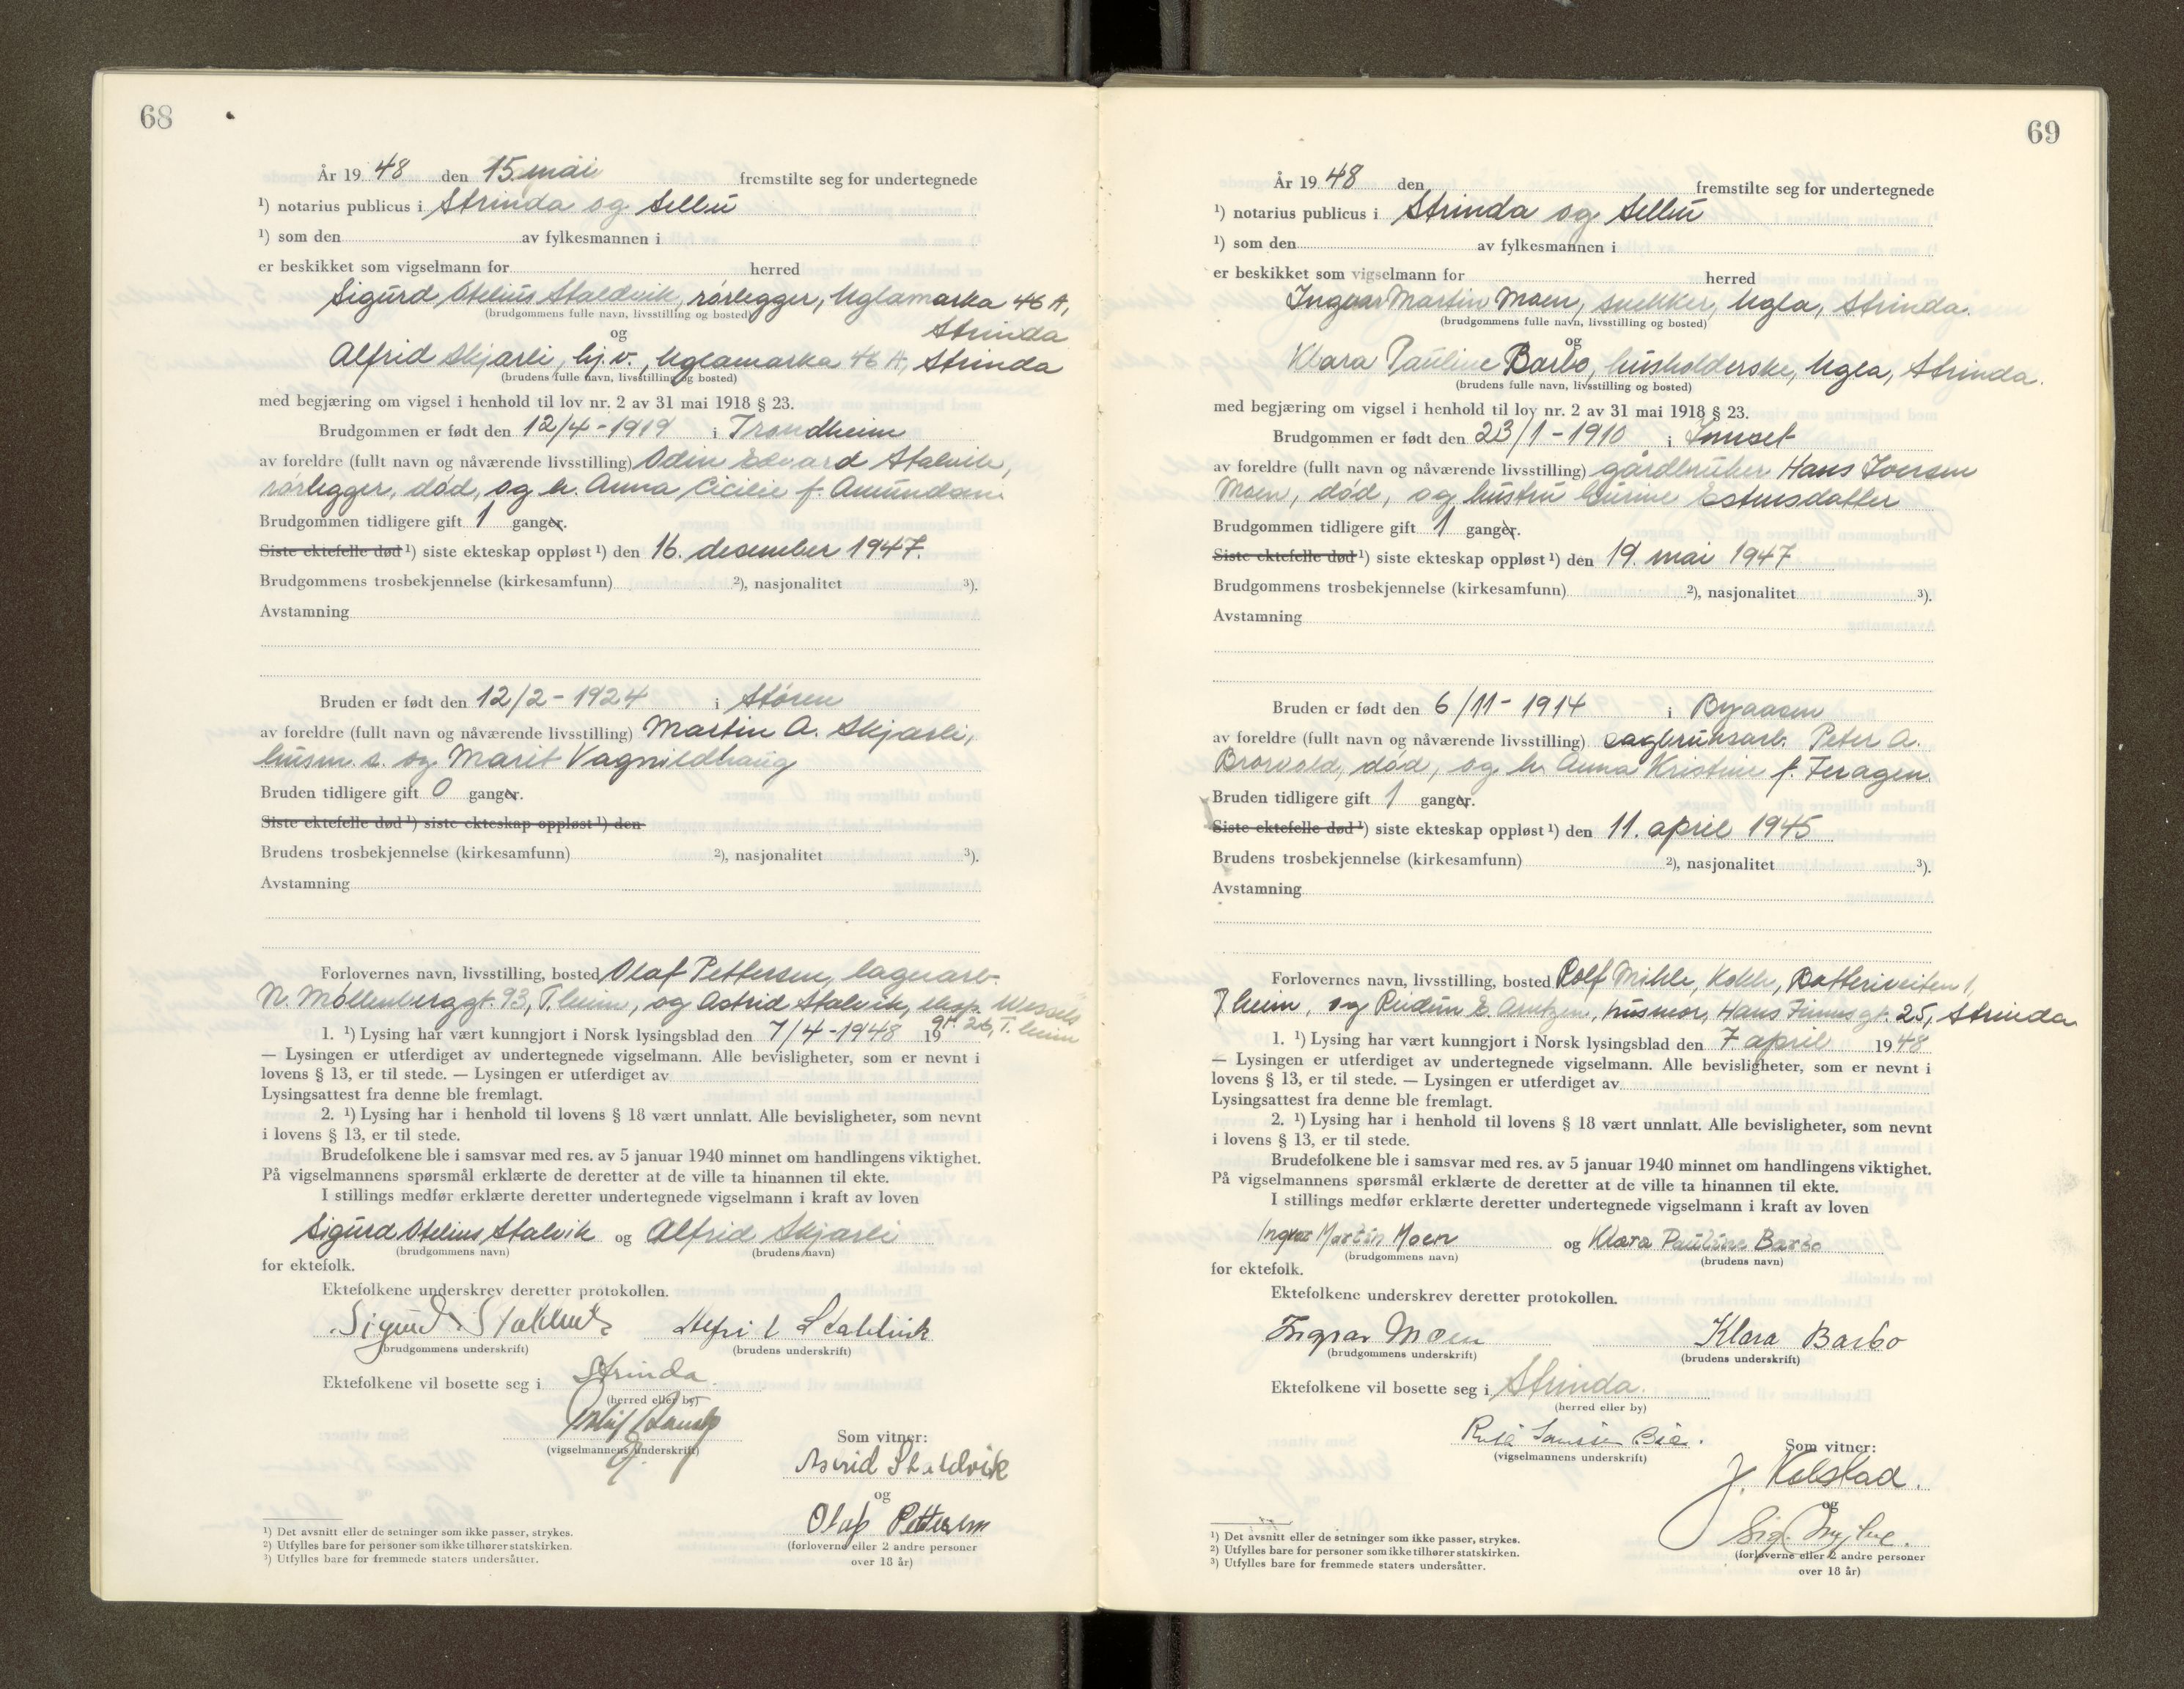 68
År 19 48 den 15. mai fremstilte seg for undertegnede
¹) notarius publicus i Strinda og Selbu
¹) som den av fylkesmannen i
er beskikket som vigselmann for herred
Sigurd Otelius Staldvik, rørlegger, Uglamarka 46 A,
(brudgommens fulle navn, livsstilling og bosted)
og Strinda
Alfrid Skjærli, hj.v., Uglamarka 46 A, Strinda
(brudens fulle navn, livsstilling og bosted)
med begjæring om vigsel i henhold til lov nr. 2 av 31 mai 1918 § 23.
Brudgommen er født den 12/4-1919 i Trondheim
av foreldre (fullt navn og nåværende livsstilling) Odin Edvard Stalvik,
rørlegger, død, og h. Anna Cicilie f. Amundsen
Brudgommen tidligere gift 1 ganger.
Siste ektefelle død ¹) siste ekteskap oppløst ¹) den 16. desember 1947.
Brudgommens trosbekjennelse (kirkesamfunn) ²), nasjonalitet ³).
Avstamning
Bruden er født den 12/2-1924 i Støren
av foreldre (fullt navn og nåværende livsstilling) Martin A. Skjærli,
husm. s. og Marit Vagnildhaug
Bruden tidligere gift 0 ganger.
Siste ektefelle død ¹) siste ekteskap oppløst ¹) den
Brudens trosbekjennelse (kirkesamfunn) ²), nasjonalitet ³).
Avstamning
Forlovernes navn, livsstilling, bosted Olaf Pettersen, lagerarb.
N. Møllenberggt. 93, T.heim, og Astrid Stalvik, eksp. Wessels
gt. 26, T.heim
1. ¹) Lysing har vært kunngjort i Norsk lysingsblad den 7/4-1948 19
— Lysingen er utferdiget av undertegnede vigselmann. Alle bevisligheter, som er nevnt i
lovens § 13, er til stede. — Lysingen er utferdiget av
Lysingsattest fra denne ble fremlagt.
2. ¹) Lysing har i henhold til lovens § 18 vært unnlatt. Alle bevisligheter, som nevnt
i lovens § 13, er til stede.
Brudefolkene ble i samsvar med res. av 5 januar 1940 minnet om handlingens viktighet.
På vigselmannens spørsmål erklærte de deretter at de ville ta hinannen til ekte.
I stillings medfør erklærte deretter undertegnede vigselmann i kraft av loven
Sigurd Otelius Stalvik og Alfrid Skjærli
(brudgommens navn) (brudens navn)
for ektefolk.
Ektefolkene underskrev deretter protokollen.
Sigurd Staldvik
(brudgommens underskrift) (brudens underskrift)
Ektefolkene vil bosette seg i Strinda
(herred eller by)
(vigselmannens underskrift)
Som vitner:
Astrid Staldvik
og
Olaf Pettersen
(forloverne eller 2 andre personer
over 18 år)
¹) Det avsnitt eller de setninger som ikke passer, strykes.
²) Utfylles bare for personer som ikke tilhører statskirken.
³) Utfylles bare for fremmede staters undersåtter.
69
År 19 48 den fremstilte seg for undertegnede
¹) notarius publicus i Strinda og Selbu
¹) som den av fylkesmannen i
er beskikket som vigselmann for herred
Ingvar Martin Moen, snekker, Ugla, Strinda.
(brudgommens fulle navn, livsstilling og bosted)
og
Klara Pauline Barbo, husholderske, Ugla, Strinda.
(brudens fulle navn, livsstilling og bosted)
med begjæring om vigsel i henhold til lov nr. 2 av 31 mai 1918 § 23.
Brudgommen er født den 23/1-1910 i Innset
av foreldre (fullt navn og nåværende livsstilling) gårdbruker Hans Iversen
Moen, død, og hustru Gurine Estensdatter
Brudgommen tidligere gift 1 ganger.
Siste ektefelle død ¹) siste ekteskap oppløst ¹) den 19. mai 1947
Brudgommens trosbekjennelse (kirkesamfunn) ²), nasjonalitet ³).
Avstamning
Bruden er født den 6/11-1914 i Byaasen
av foreldre (fullt navn og nåværende livsstilling) sagbruksarb. Peter A.
død, og h. Anna Kristine f. Feragen.
Bruden tidligere gift 1 ganger.
Siste ektefelle død ¹) siste ekteskap oppløst ¹) den 11. april 1945
Brudens trosbekjennelse (kirkesamfunn) ²), nasjonalitet ³).
Avstamning
Forlovernes navn, livsstilling, bosted Rolf Mikle, kokk, Batteriveiten 1,
T.heim, og Reidun E. Arntzen, husmor, Hans Finnes gt. 25, Strinda
1. ¹) Lysing har vært kunngjort i Norsk lysingsblad den 7. april 1948
— Lysingen er utferdiget av undertegnede vigselmann. Alle bevisligheter, som er nevnt i
lovens § 13, er til stede. — Lysingen er utferdiget av
Lysingsattest fra denne ble fremlagt.
2. ¹) Lysing har i henhold til lovens § 18 vært unnlatt. Alle bevisligheter, som nevnt
i lovens § 13, er til stede.
Brudefolkene ble i samsvar med res. av 5 januar 1940 minnet om handlingens viktighet.
På vigselmannens spørsmål erklærte de deretter at de ville ta hinannen til ekte.
I stillings medfør erklærte deretter undertegnede vigselmann i kraft av loven
Ingvar Martin Moen og Klara Pauline Barbo
(brudgommens navn) (brudens navn)
for ektefolk.
Ektefolkene underskrev deretter protokollen.
Ingvar Moen Klara Barbo
(brudgommens underskrift) (brudens underskrift)
Ektefolkene vil bosette seg i Strinda.
(herred eller by)
(vigselmannens underskrift)
Som vitner:
J. Kolstad.
og
Sig.
(forloverne eller 2 andre personer
over 18 år)
¹) Det avsnitt eller de setninger som ikke passer, strykes.
²) Utfylles bare for personer som ikke tilhører statskirken.
³) Utfylles bare for fremmede staters undersåtter.